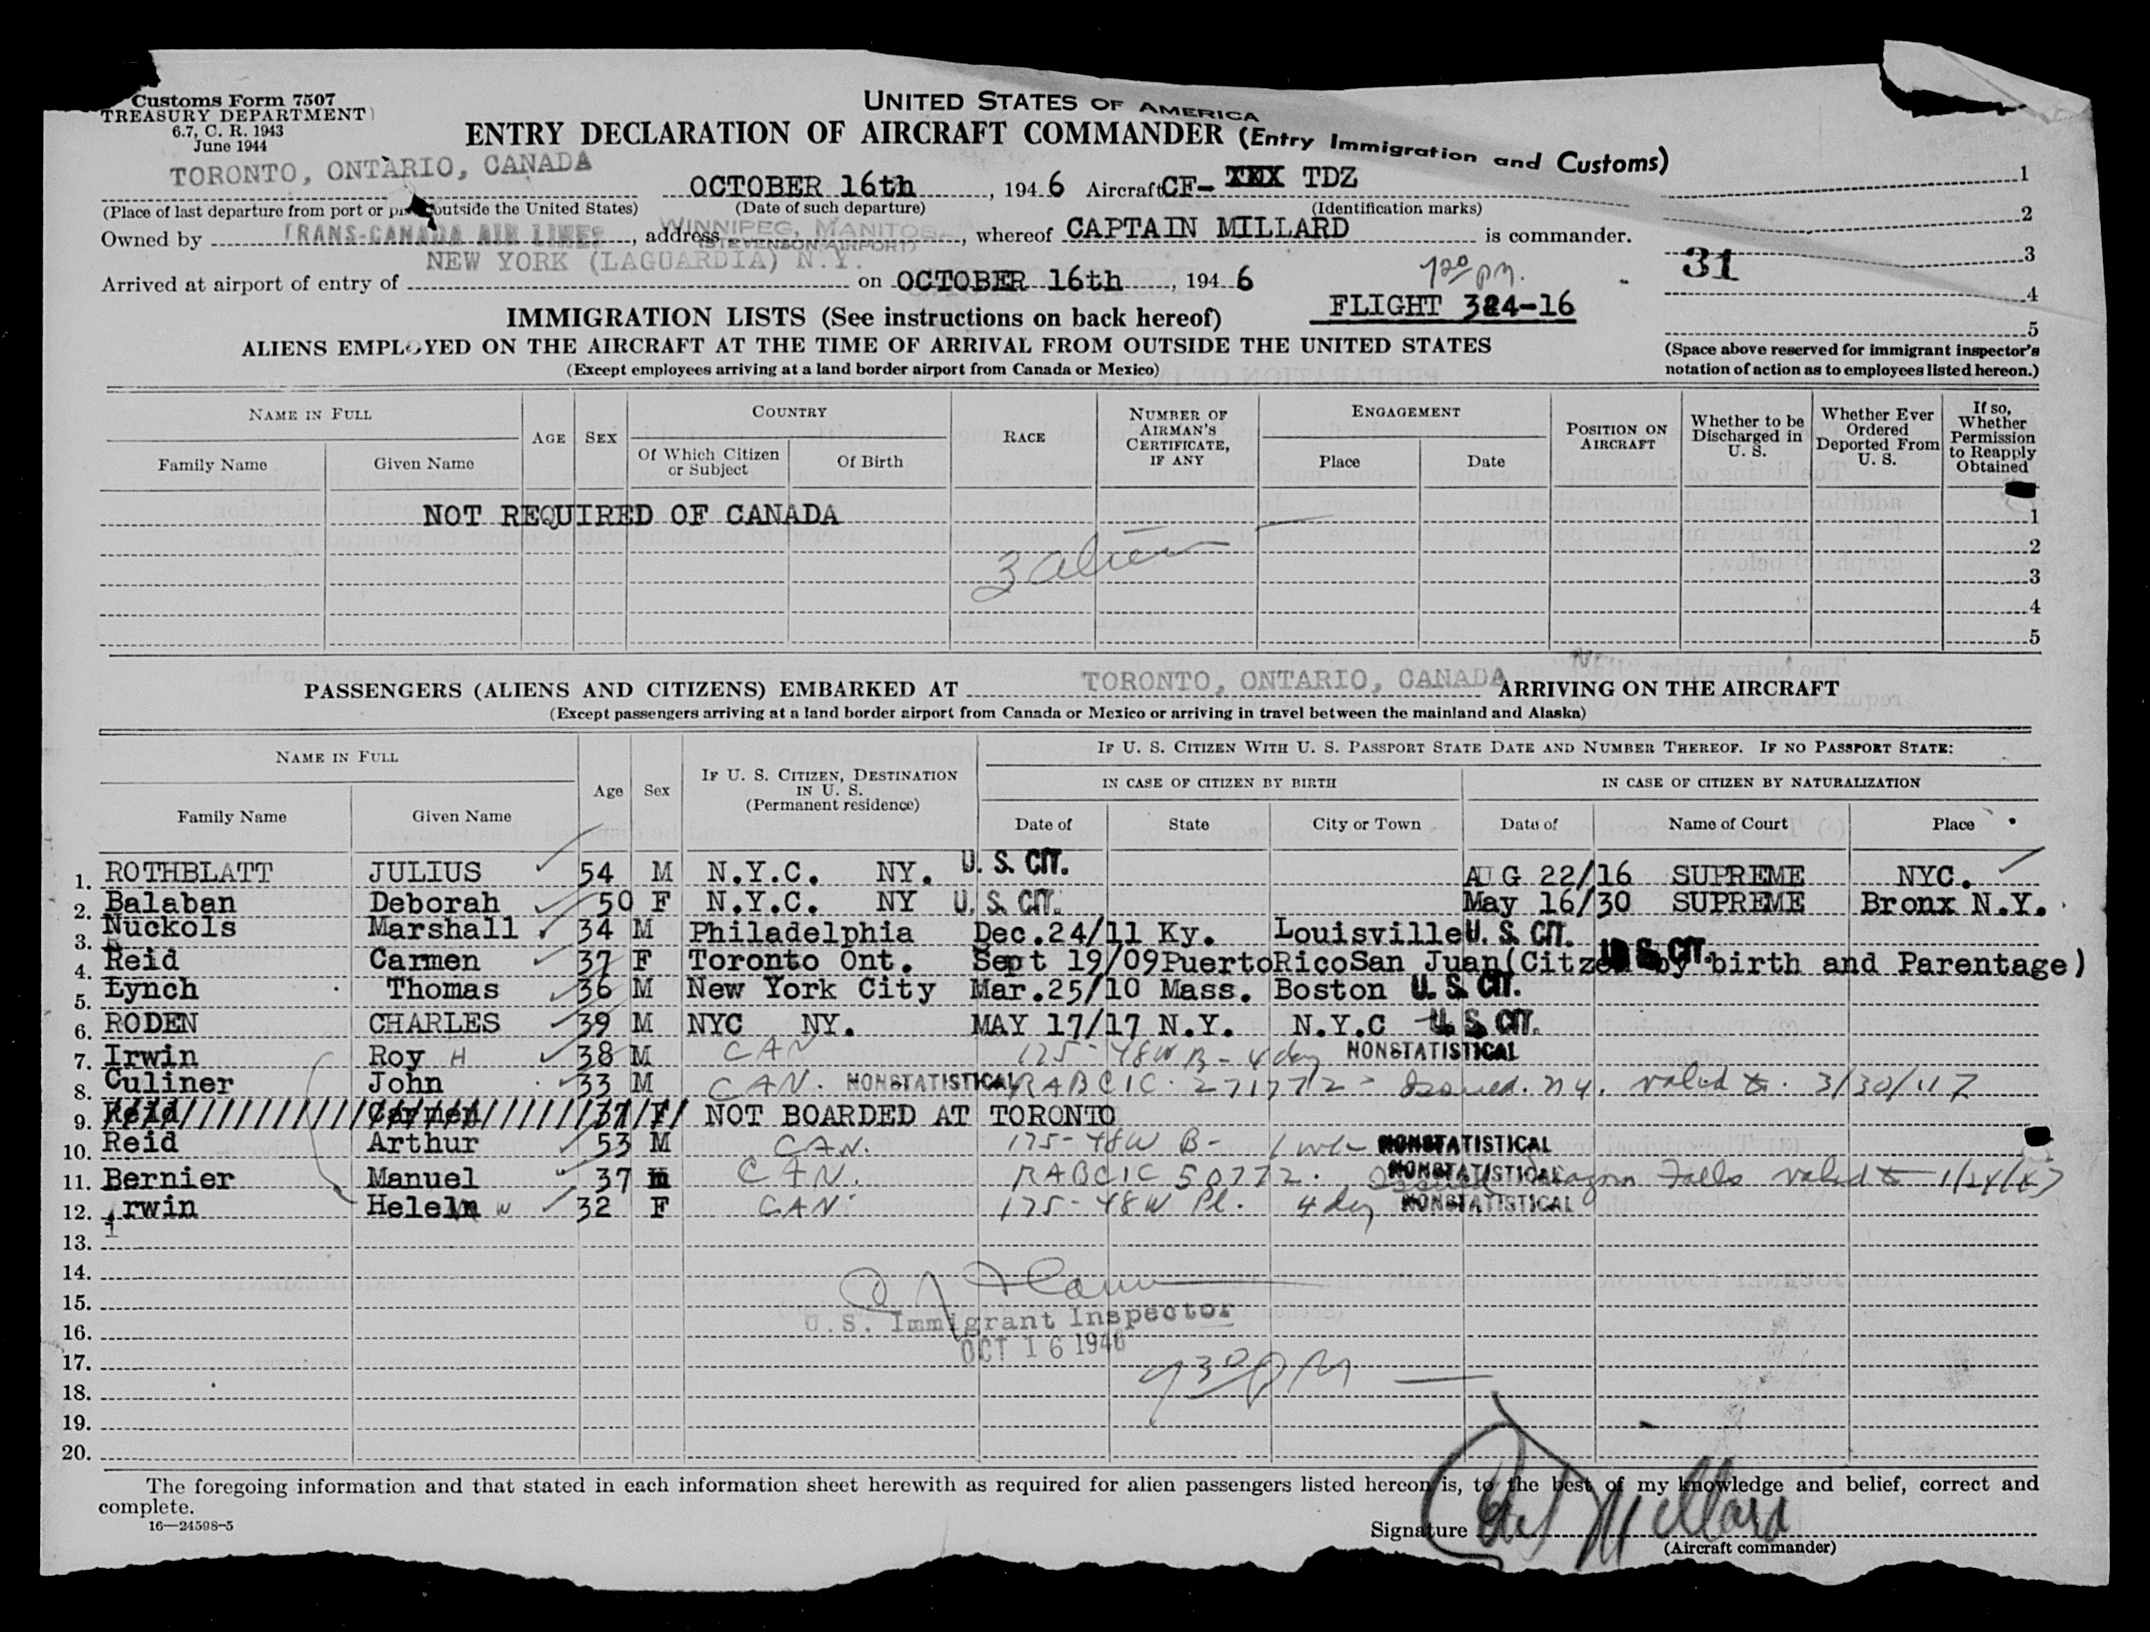 Customs Form 7507
TREASURY DEPARTMENT
6.7, C. R. 1943
June 1944
UNITED STATES OF AMERICA
ENTRY DECLARATION OF AIRCRAFT COMMANDER (Entry Immigration and Customs)
TORONTO, ONTARIO, CANADA OCTOBER 16th, 194 6 Aircraft CF- TDZ 1
(Place of last departure from port or outside the United States) (Date of such departure) (Identification marks)
2
Owned by TRANS-CANADA AIR LINES, address WINNIPEG, MANITOBA (STEVENSON AIRPORT), whereof CAPTAIN MILLARD is commander.
31 3
Arrived at airport of entry of NEW YORK (LAGUARDIA) N.Y. on OCTOBER 16th, 194 6 7 20 pm.
4
IMMIGRATION LISTS (See instructions on back hereof) FLIGHT 324-16
5
ALIENS EMPLOYED ON THE AIRCRAFT AT THE TIME OF ARRIVAL FROM OUTSIDE THE UNITED STATES
(Except employees arriving at a land border airport from Canada or Mexico)
(Space above reserved for immigrant inspector's
notation of action as to employees listed hereon.)
NAME IN FULL
Family Name Given Name
AGE SEX
COUNTRY
Of Which Citizen or Subject Of Birth
RACE
NUMBER OF AIRMAN'S CERTIFICATE, IF ANY
ENGAGEMENT
Place Date
POSITION ON AIRCRAFT
Whether to be Discharged in U. S.
Whether Ever Ordered Deported From U. S.
If so, Whether Permission to Reapply Obtained
NOT REQUIRED OF CANADA 1
3 alien 2
3
4
5
PASSENGERS (ALIENS AND CITIZENS) EMBARKED AT TORONTO, ONTARIO, CANADA ARRIVING ON THE AIRCRAFT
(Except passengers arriving at a land border airport from Canada or Mexico or arriving in travel between the mainland and Alaska)
NAME IN FULL
Family Name Given Name
Age Sex
IF U. S. CITIZEN, DESTINATION IN U. S. (Permanent residence)
IF U. S. CITIZEN WITH U. S. PASSPORT STATE DATE AND NUMBER THEREOF. IF NO PASSPORT STATE:
IN CASE OF CITIZEN BY BIRTH IN CASE OF CITIZEN BY NATURALIZATION
Date of State City or Town Date of Name of Court Place
1. ROTHBLATT JULIUS 54 M N.Y.C. NY. U. S. CIT. AUG 22/16 SUPREME NYC.
2. Balaban Deborah 50 F N.Y.C. NY U. S. CIT. May 16/30 SUPREME Bronx N.Y.
3. Nuckols Marshall 34 M Philadelphia Dec.24/11 Ky. Louisville U. S. CIT.
4. Reid Carmen 37 F Toronto Ont. Sept 19/09 Puerto Rico San Juan (Citzen by birth and Parentage) U. S. CIT.
5. Lynch Thomas 36 M New York City Mar.25/10 Mass. Boston U. S. CIT.
6. RODEN CHARLES 39 M NYC NY. MAY 17/17 N.Y. N.Y.C U. S. CIT.
7. Irwin Roy H 38 M CAN 175-48W B - 4 day NONSTATISTICAL
8. Culiner John 33 M CAN. NONSTATISTICAL RABCIC. 271772 - Issued. N.Y. valid to. 3/30/47
9. Reid Carmen 37 F NOT BOARDED AT TORONTO
10. Reid Arthur 53 M CAN. 175-48W B- 1 wk NONSTATISTICAL
11. Bernier Manuel 37 M CAN. RABCIC 50772. NONSTATISTICAL Falls valid to 1/24/47
12. Irwin Helen W 32 F CAN 175-48W Pl. 4 day NONSTATISTICAL
13.
14.
15.
U.S. Immigrant Inspector
16.
OCT 16 1946
17.
7 30 PM
18.
19.
20.
The foregoing information and that stated in each information sheet herewith as required for alien passengers listed hereon is, to the best of my knowledge and belief, correct and
complete.
16—24598-5
Signature Millard
(Aircraft commander)